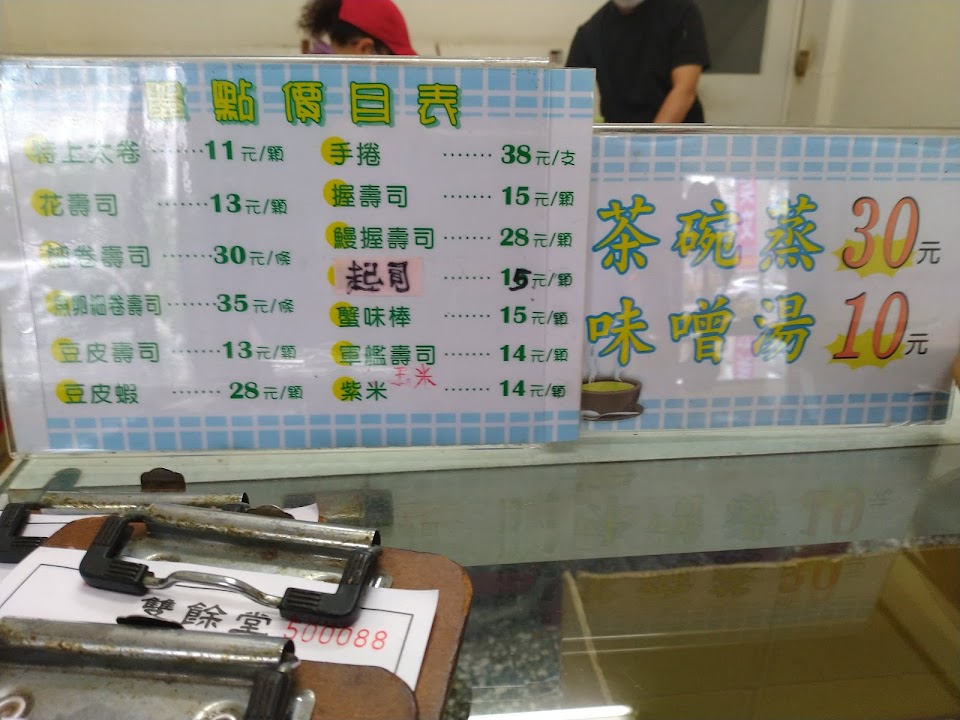 單點價目表
上太卷 ……11元/顆
花壽司 ……13元/顆
細卷壽司 ……30元/條
魚卵細卷壽司 ……35元/條
豆皮壽司 ……13元/顆
豆皮蝦 ……28元/顆
手捲 ……38元/支
握壽司 ……15元/顆
鰻握壽司 ……28元/顆
起司 ……15元/顆
蟹味棒 ……15元/顆
軍艦壽司 ……14元/顆
玉米
紫米 ……14元/顆
茶碗蒸 30元
味噌湯 10元
雙餘堂 500088